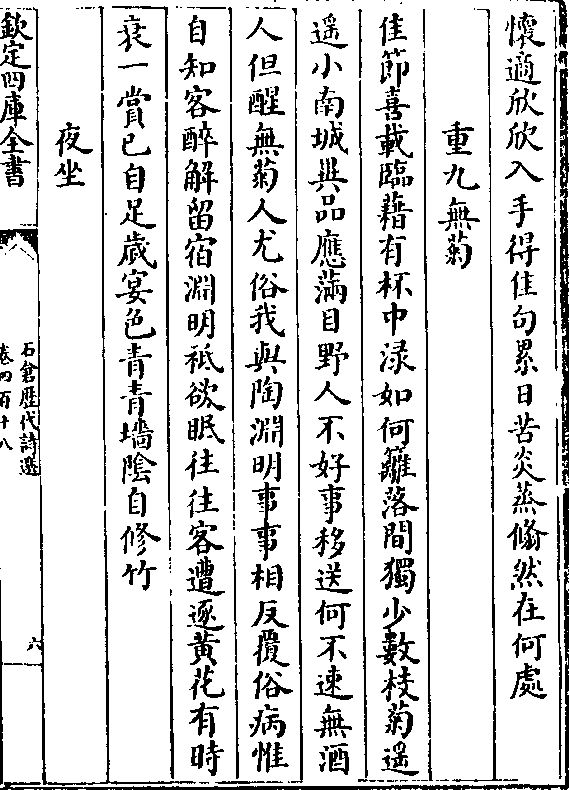 懷適欣欣入手得佳句累日苦炎蒸翛然在何處
重九無菊
佳節喜載臨藉有杯中渌如何籬落間獨少數枝菊遥
遥小南城與品應滿目野人不好事移送何不速無酒
人但醒無菊人尤俗我與陶淵明事事相反覆俗病惟
自知客醉解留宿淵明祗欲眠往往客遭逐黄花有時
衰一賞已自足歳宴色青青墻陰自修竹
夜坐
欽定四庫全書
石倉歴代詩選
卷四百十八
六